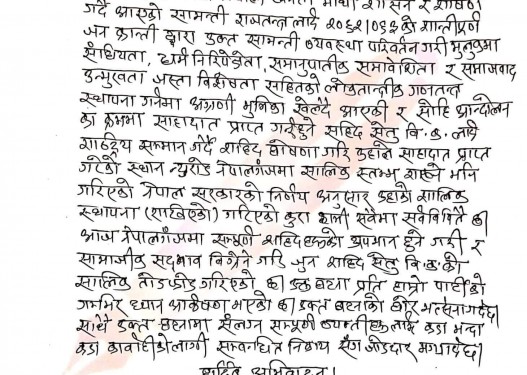 गर्दै आएको सामन्ती राजतन्त्रलाई २०६२।०६३को शान्तीपूर्ण
जन क्रान्ती द्वारा उक्त सामन्ती व्यवस्था परिवर्तन गरी मुलुकमा
संघियता, धर्म निरिपेक्षता, समानुपातीक समावेशिता र समाजवाद
उन्मुखता जस्ता विशेषता सहितको लोकतान्त्रीक गणतन्त्र
स्थापना गर्नमा अग्रणी भुमिका खेल्दै आएकी र सोहि आन्दोलन
का क्रममा साहादात प्राप्त गर्नुहुने सहिद सेतु वि.क. लाई
राष्ट्रिय सम्मान गर्दै शहिद घोषणा गरि उहाँले साहादात प्राप्त
गरेको स्थान न्युरोड नेपालगंजमा सालिक स्तम्भ राख्ने भनि
गरिएको नेपाल सरकारको निर्णय अनुसार उहाँको शालिक
स्थापना (राखिएको) गरिएको कुरा हामी सबैमा सर्वविदितै छ।
आज नेपालगंजमा सम्पूर्ण शहिदहरुको अपमान हुने गरी र
सामाजीक सद्भाव बिग्रने गरि जुन शहिद सेतु वि.क.को
सालिक तोडफोड गरिएको छ। उक्त घटना प्रति हाम्रो पार्टीको
गम्भिर ध्यान आकर्षण भएको छ। उक्त घटनाको घोर भर्त्सना गर्दछ।
साथै उक्त घटनामा संलग्न सम्पूर्ण व्यक्तीहरु लाई कडा भन्दा
कडा कार्वाहीको लागी सम्वन्धित निकाय संग जोडदार माग गर्दछ।
अभिवादन।